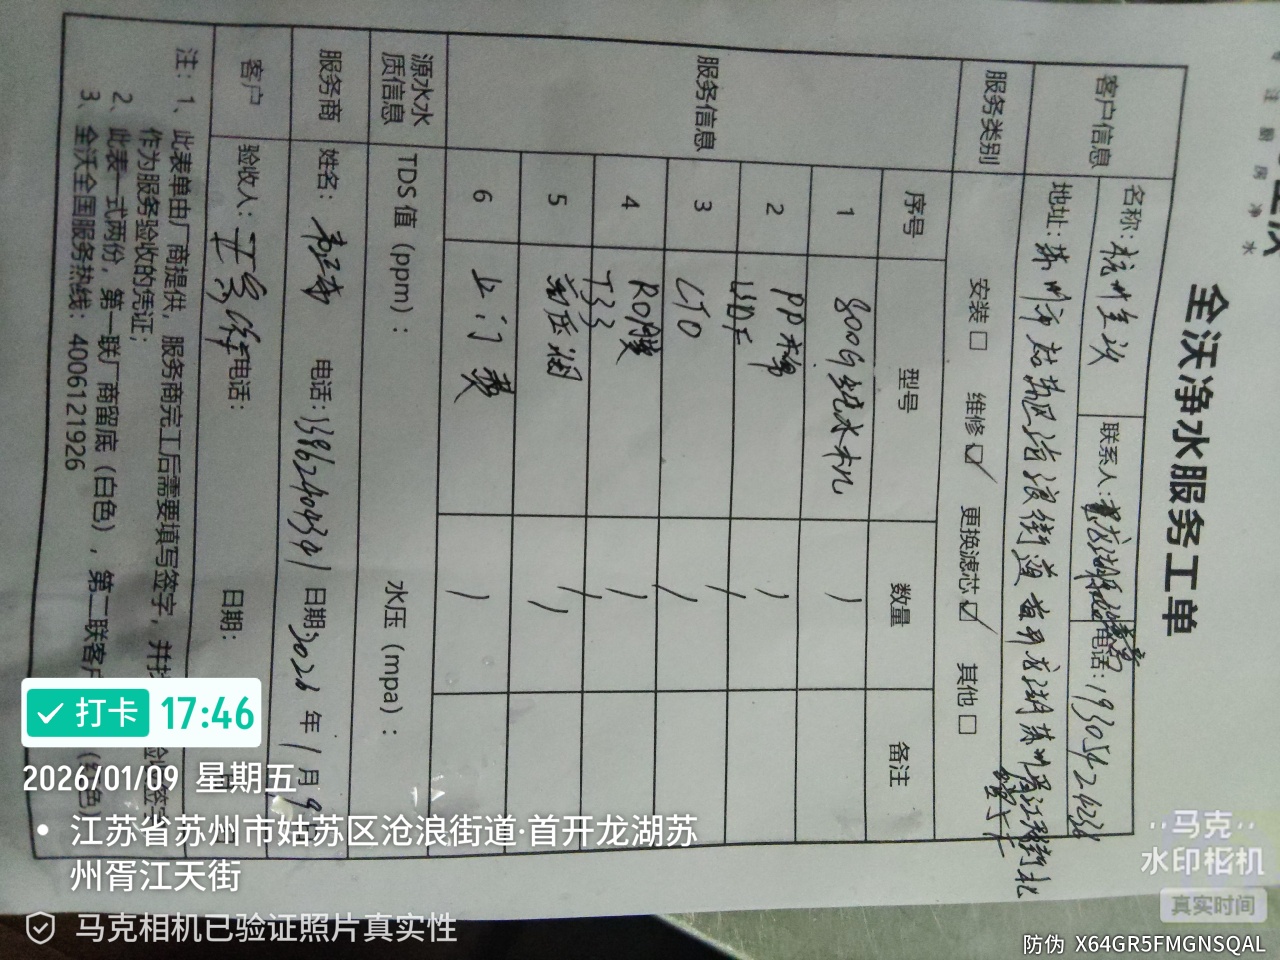 全沃净水服务工单
客户信息
名称：杭州生议
联系人：
电话：19305424236
地址：苏州市姑苏区沧浪街道首开龙湖苏州胥江天街北
服务类别
安装□ 维修☑ 更换滤芯☑ 其他□
服务信息
序号 型号 数量 备注
1 800G纯水机 1
2 PP棉 1
UDF 1
3 CTO 1
4 RO膜 1
T33 1
5 1
6 上门费 1
源水水质信息
TDS 值（ppm）： 水压（mpa）：
服务商
姓名： 电话： 日期：2026年1月9日
客户
验收人： 电话： 日期：
注：1、此表单由厂商提供，服务商完工后需要填写签字，并
作为服务验收的凭证；
2、此表一式两份，第一联厂商留底（白色），第二联客户
3、全沃全国服务热线：4006121926
打卡 17:46
2026/01/09 星期五
江苏省苏州市姑苏区沧浪街道·首开龙湖苏
州胥江天街
马克相机已验证照片真实性
马克
水印相机
真实时间
防伪 X64GR5FMGNSQAL